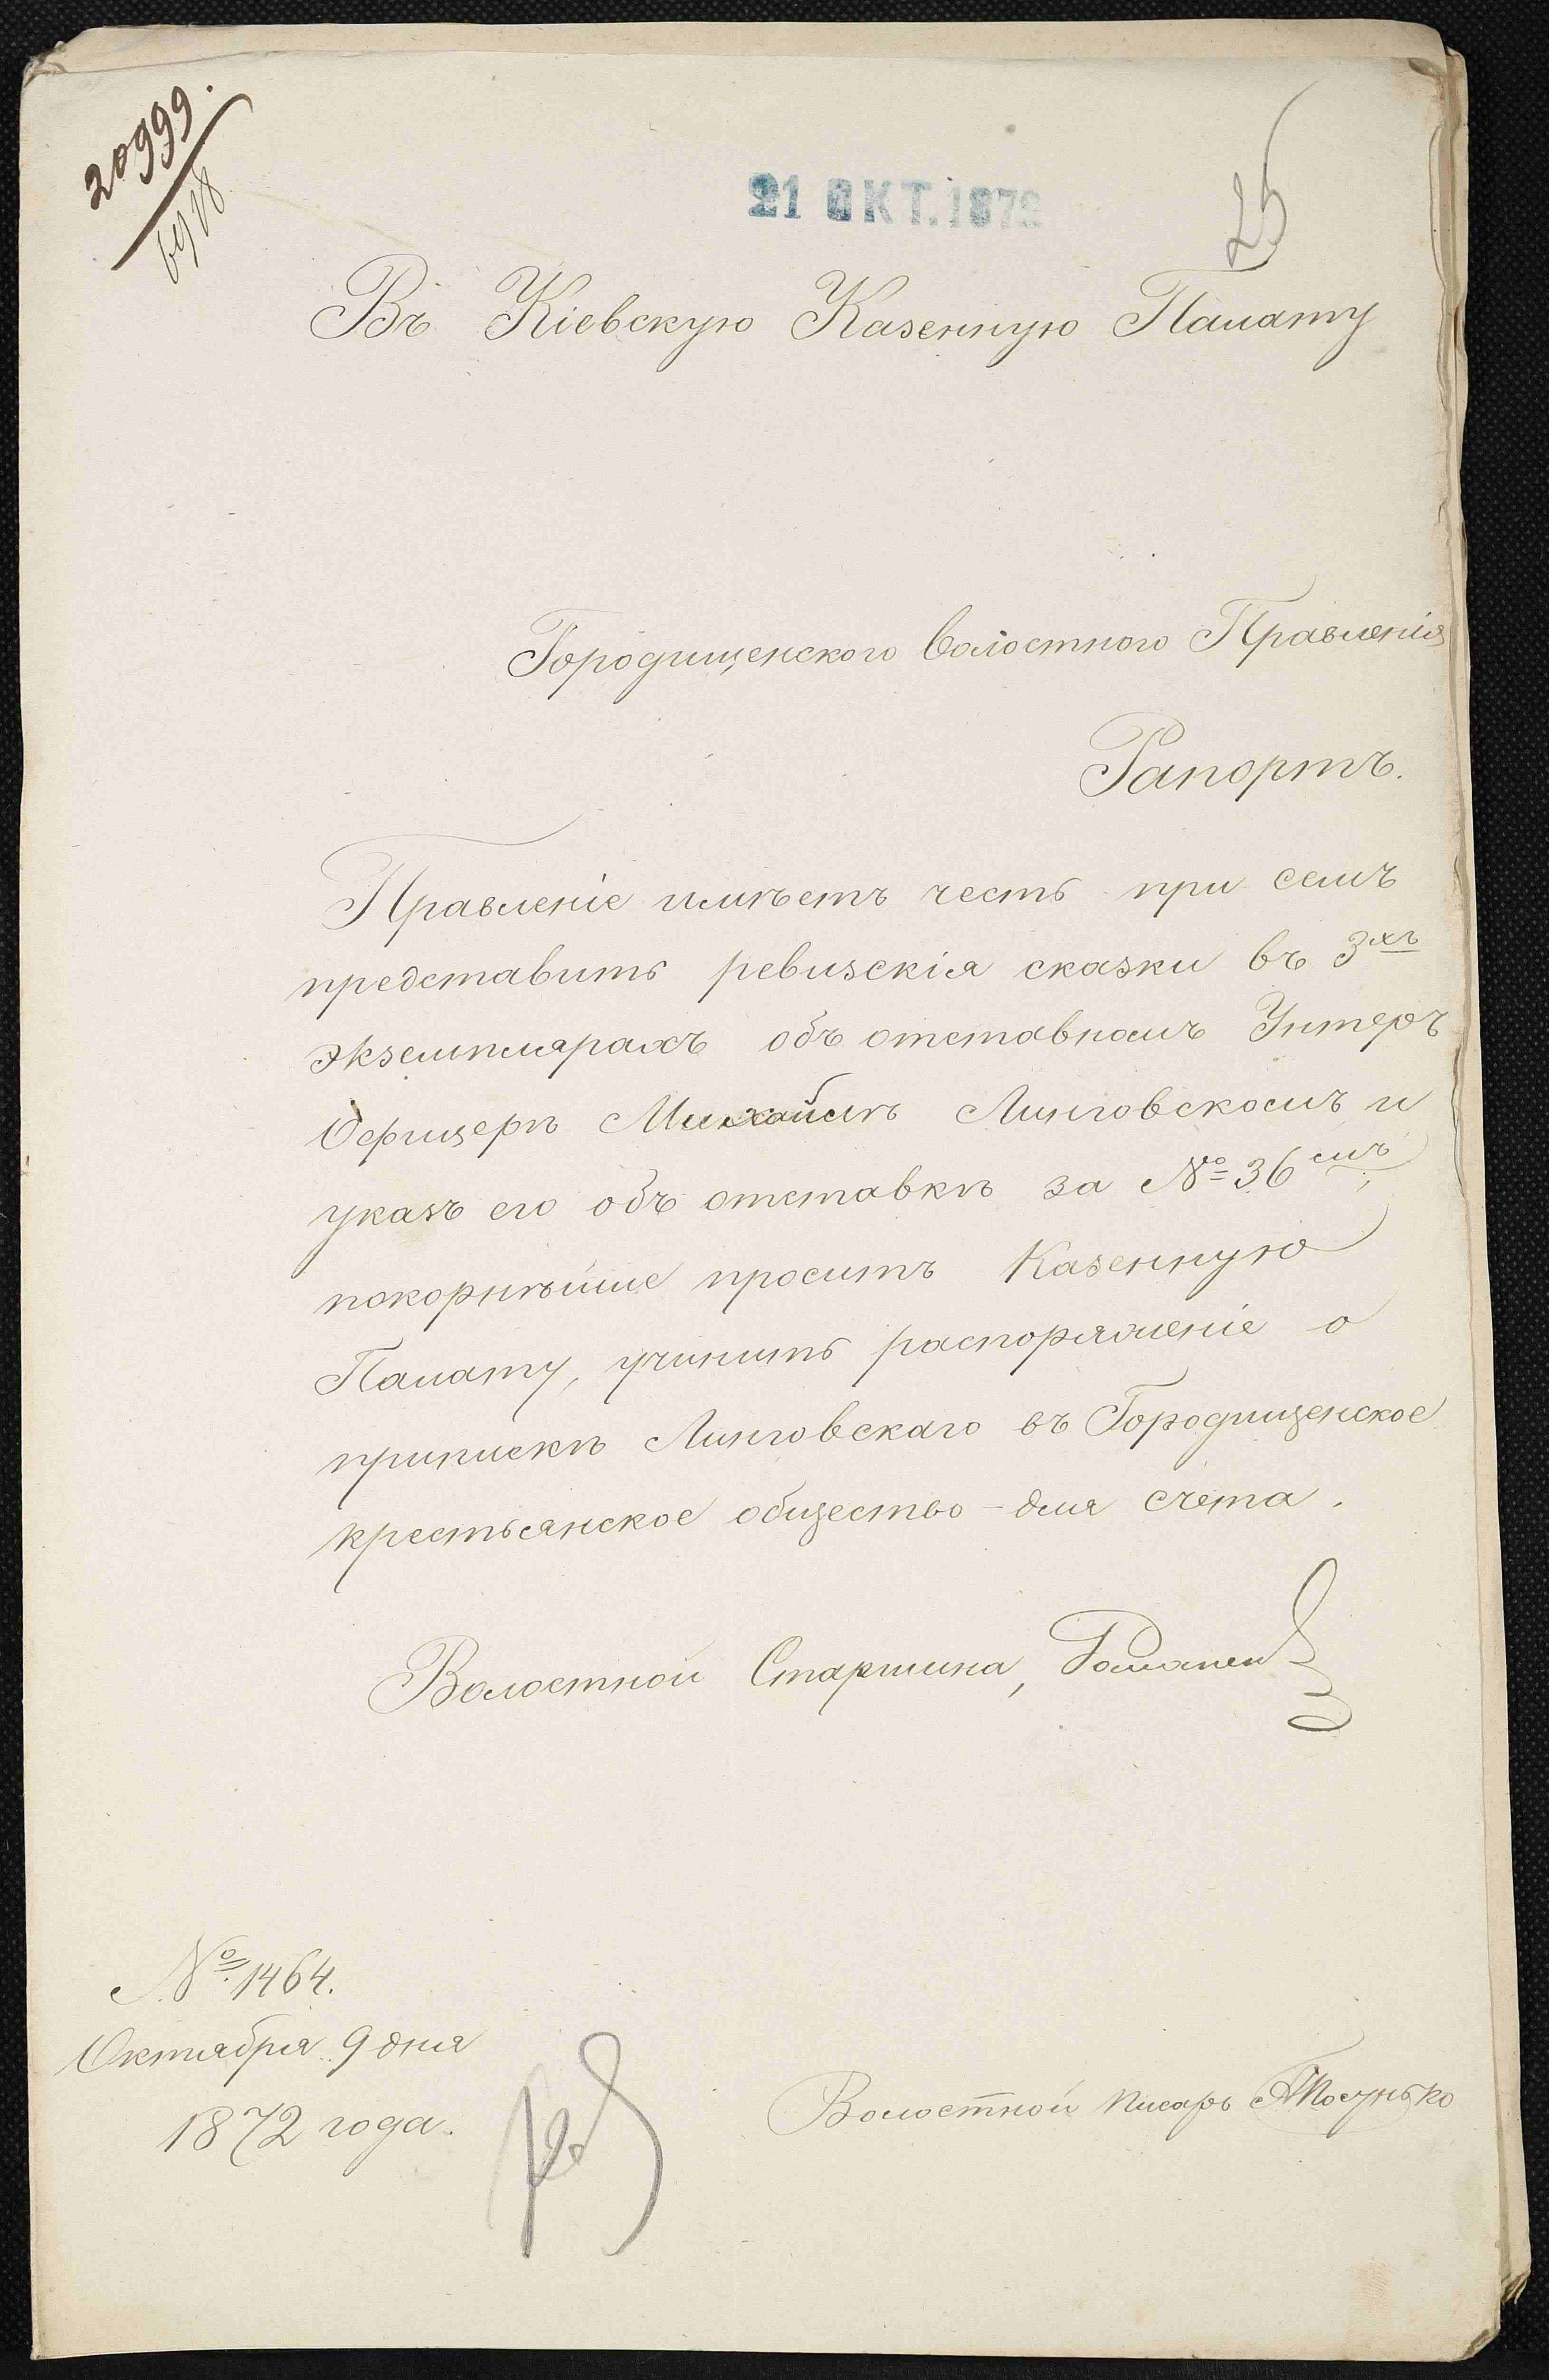 20999.
21 ОКТ. 1872
25
Въ Кіевскую Казенную Палату
Городищенского Волостного Правленія
Рапортъ.
Правленіе имѣетъ честь при семъ
представить ревизскія сказки въ 3хъ
экземплярахъ объ отставномъ Унтеръ
Офицерѣ Михайлѣ Линговскомъ и
указъ его объ отставкѣ за № 36мъ,
покорнѣйше проситъ Казенную
Палату, учинить распоряженіе о
припискѣ Линговскаго въ Городищенское
крестьянское общество - для счета.
Волостной Старшина,
№ 1464.
Октября 9 дня
1872 года.
Волостной Писарь